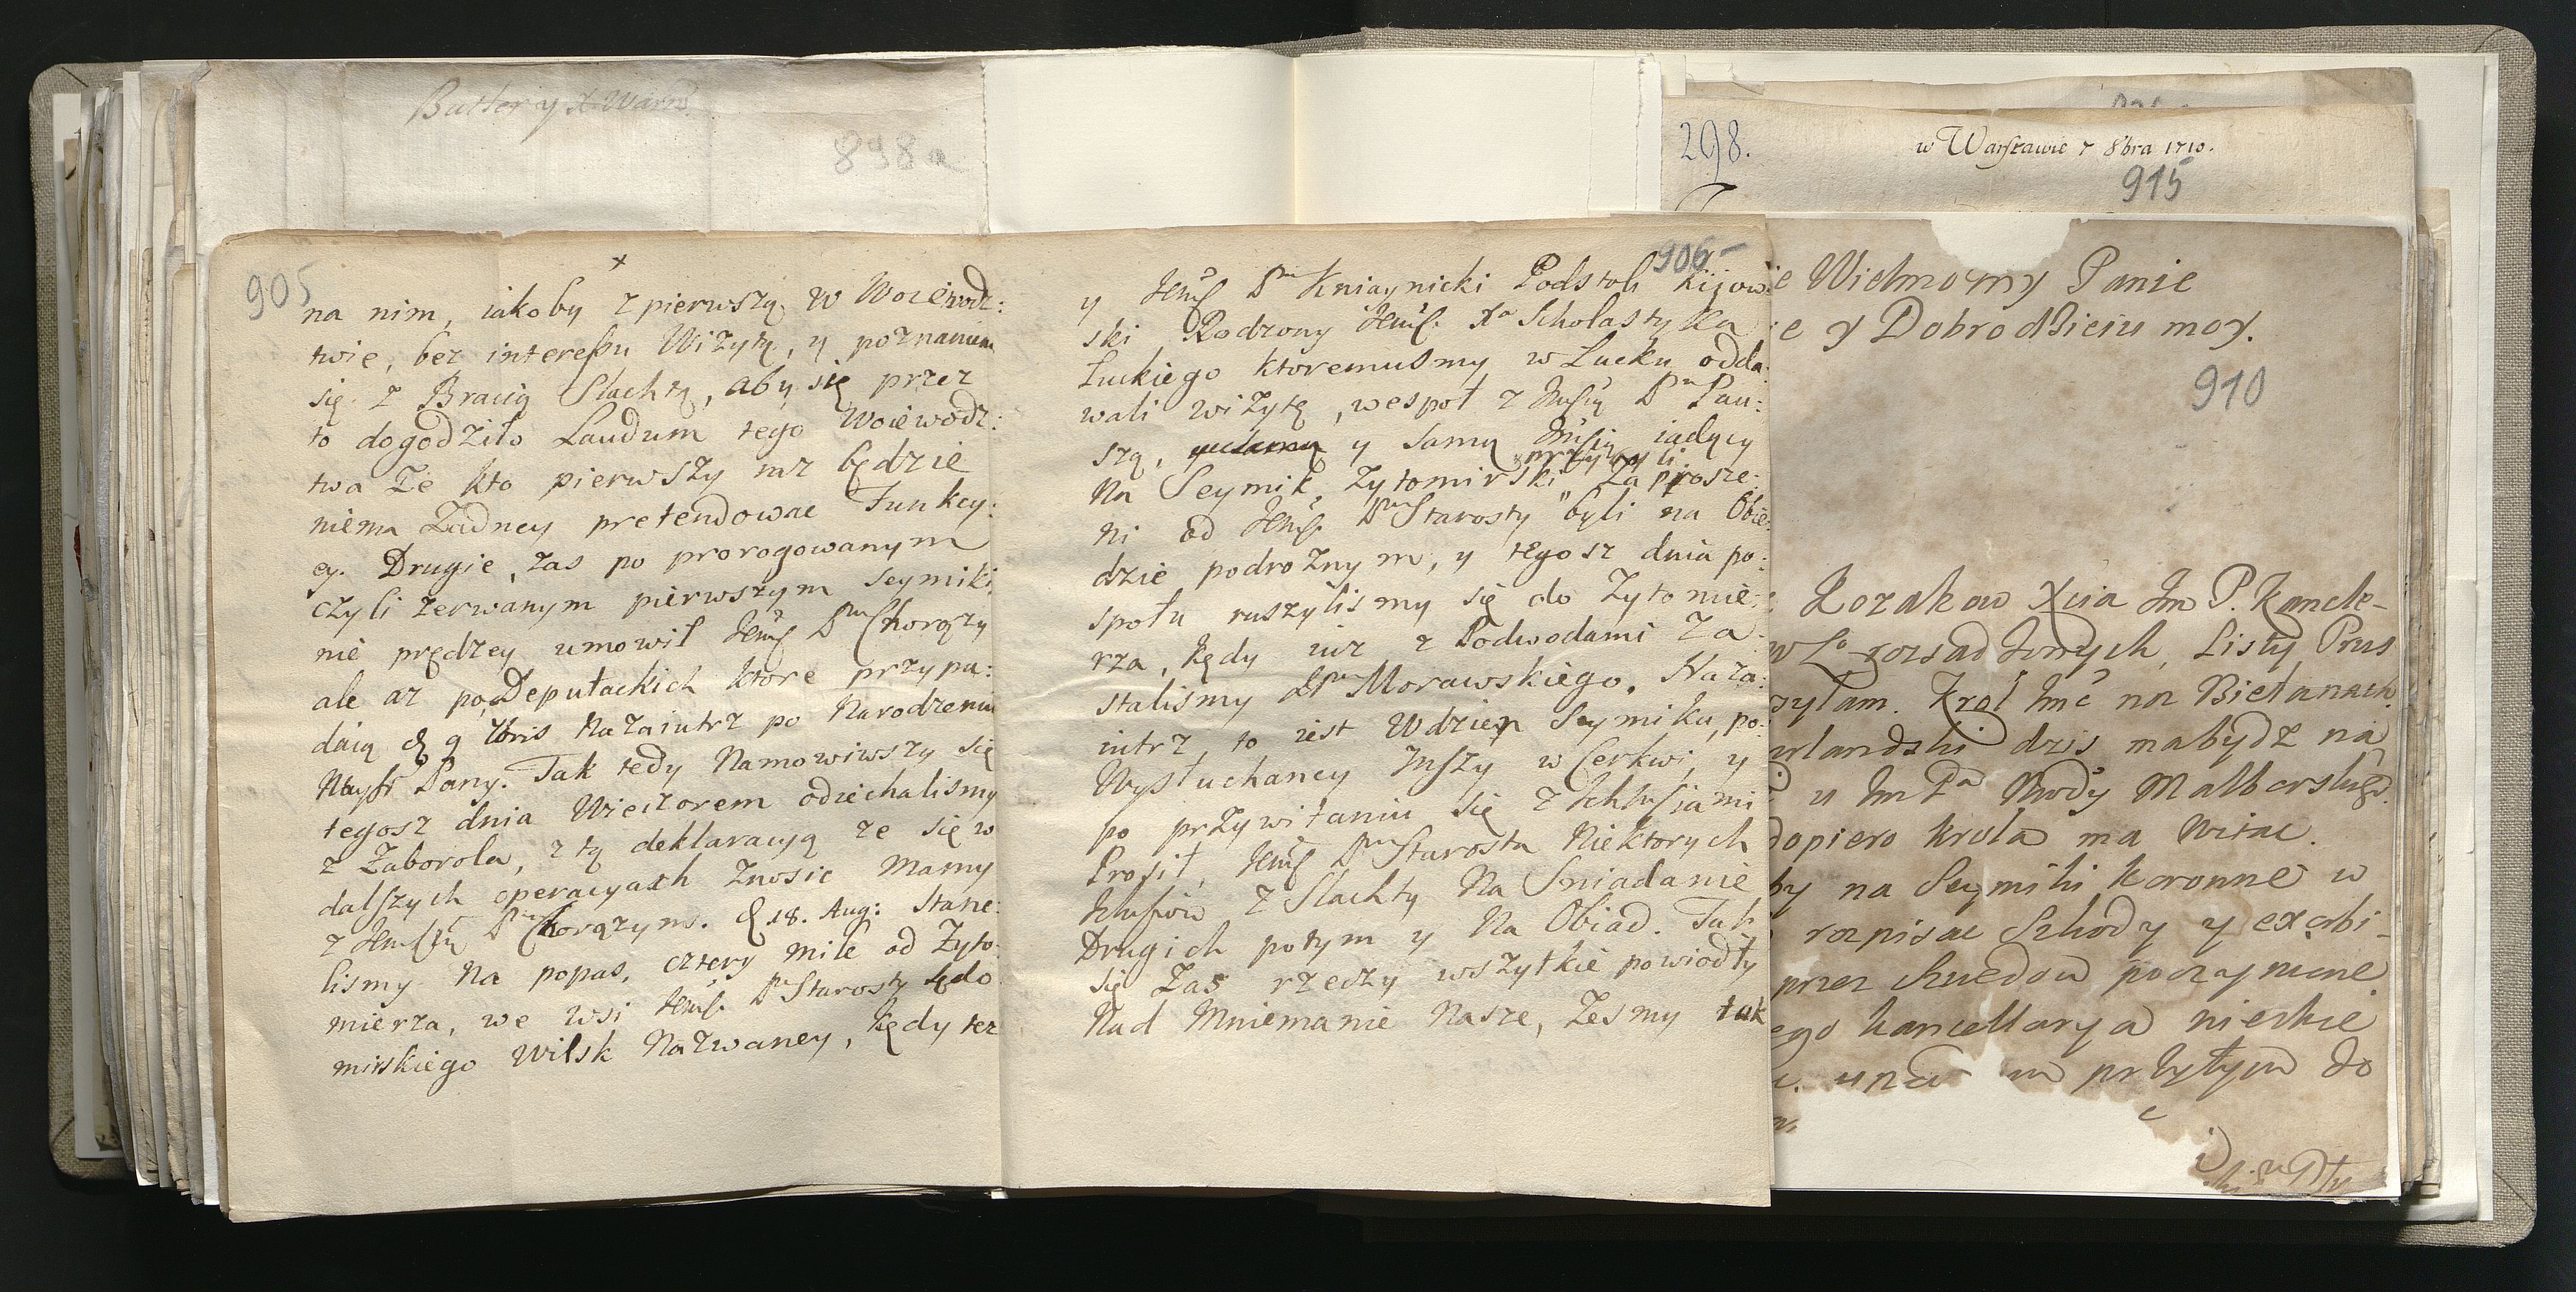 898a
298.
w Warszawie 7 8bra 1710.
915
905
x
na nim, iakoby z pierwszą w Woiewodz:
twie, bez interessu Wizytą, y poznaniem
się z Bracią Slachtą, aby się przez
to dogodziło Laudum tego Woiewodz:
twa Ze kto pierwszy raz będzie
niema Zadney pretendowac Funkcy:
ey. Drugie, zas po prorogowanym
czyli zerwanym pierwszym Seymiki
nie prędzey umowił Jmsć Pan Chorąży
ale az po Deputackich ktore przypa:
daią d 9 7bris Nazaiutrz po Narodzeniu
Nayśt Pany. Tak tedy Namowiwszy się
tegosz dnia Wieczorem odiechalismy
z Zaborola, z tą deklaracyą ze się w
dalszych operacyach Znosic Mamy
z Jmscią Pm Chorązym. d 18. Aug: Stane:
lismy Na popas, cztery mile od Zyto:
mierza, we wsi Jmsć Pna Starosty Sędo
mirskiego Wilsk Nazwaney, kędy tez
906
y Jmsć Pan Kniaynicki Podstoli Kijow:
ski Rodzony Jmsć Xa Scholastyka
Łuckiego ktoremusmy w Lucku odda:
wali wizytę, wespoł z Jmscią Pm Pau:
szą, y Samą Jmscią iadący
przybyli
Na Seymik Zytomirski Zaprosze:
ni od Jmsć Pna Starosty byli na Obie:
dzie podroznym, y tegosz dnia po:
społu ruszylismy się do Zytomie:
rza, kędy iuz z Podwodami Za:
stalismy Pna Morawskiego. Naza:
iutrz, to iest W dzien Seymiku, po
Wysłuchaney Mszy w Cerkwi, y
po przywitaniu się z Ichmsciami
Prosił, Jmsć Pan Starosta Niektorych
Jchmsciow z Slachty Na Sniadanie
Drugich potym y Na Obiad. Tak
się Zas rzeczy wszytkie powiodły
Nad Mniemanie Nasze, Zesmy tak
e Wielmozny Panie
e y Dobrodzieiu moy.
910
Kozakow Xcia Jm P. Kancle-
rozsadzonych, Listy Prus
sylam. Krol Jmć na Bielanach
urlandski dzis mabydz na
u Jm Pa Wwdy Malborskigo.
dopiero krola ma witac.
by na Seymiki koronne w
rozpisac Szkody y exorbi-
przez Szwedow poczynione
ego kancellarya nieskie
przytym do